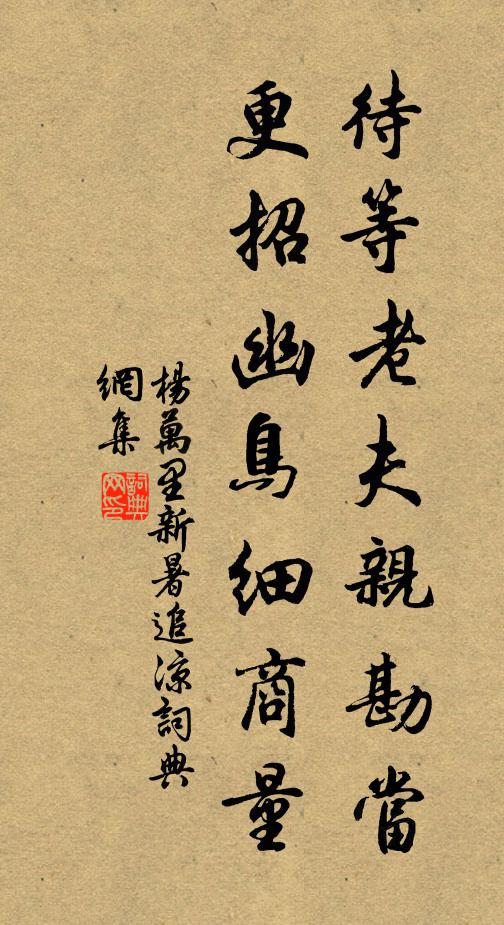 待等老夫親勘當
更招幽鳥細商量
楊萬里新暑追涼詞典
網集
詞典
网印